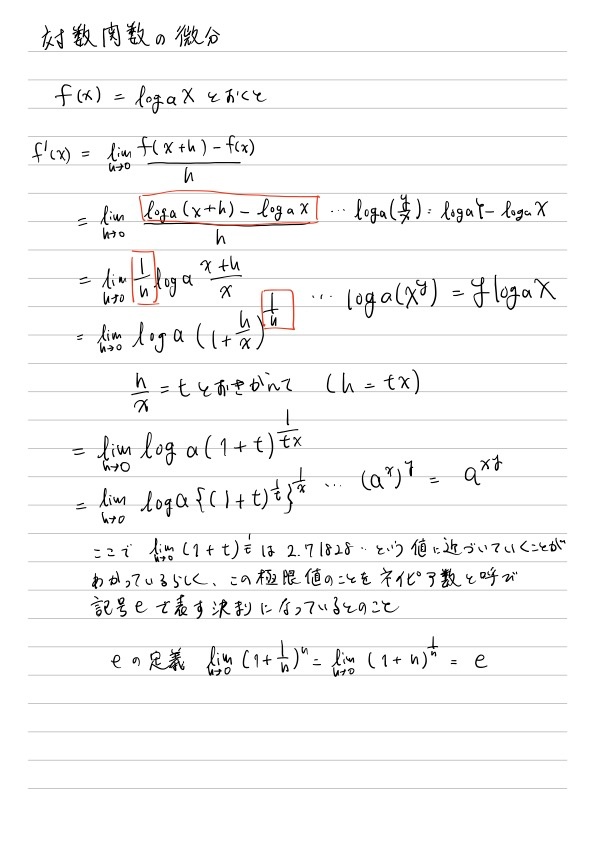 対数関数の微分
f(x) = log a x とおくと
f'(x) = lim h→0 f(x+h) - f(x) / h
= lim h→0 log a (x+h) - log a x / h … log a (y/x) = log a y - log a x
= lim h→0 1/h log a x+h / x
… log a (x^y) = y log a x
= lim h→0 log a (1 + h/x)^1/h
h/x = t とおきかえて (h = tx)
= lim h→0 log a (1+t)^1/tx
= lim h→0 log a {(1+t)^1/t}^1/x … (a^x)^y = a^xy
ここで lim h→0 (1+t)^1/t は 2.71828… という値に近づいていくことが
わかっているらしく、この極限値のことをネイピア数と呼び
記号 e で表す決まりになっているとのこと
e の定義 lim h→0 (1+1/h)^h = lim h→0 (1+h)^1/h = e